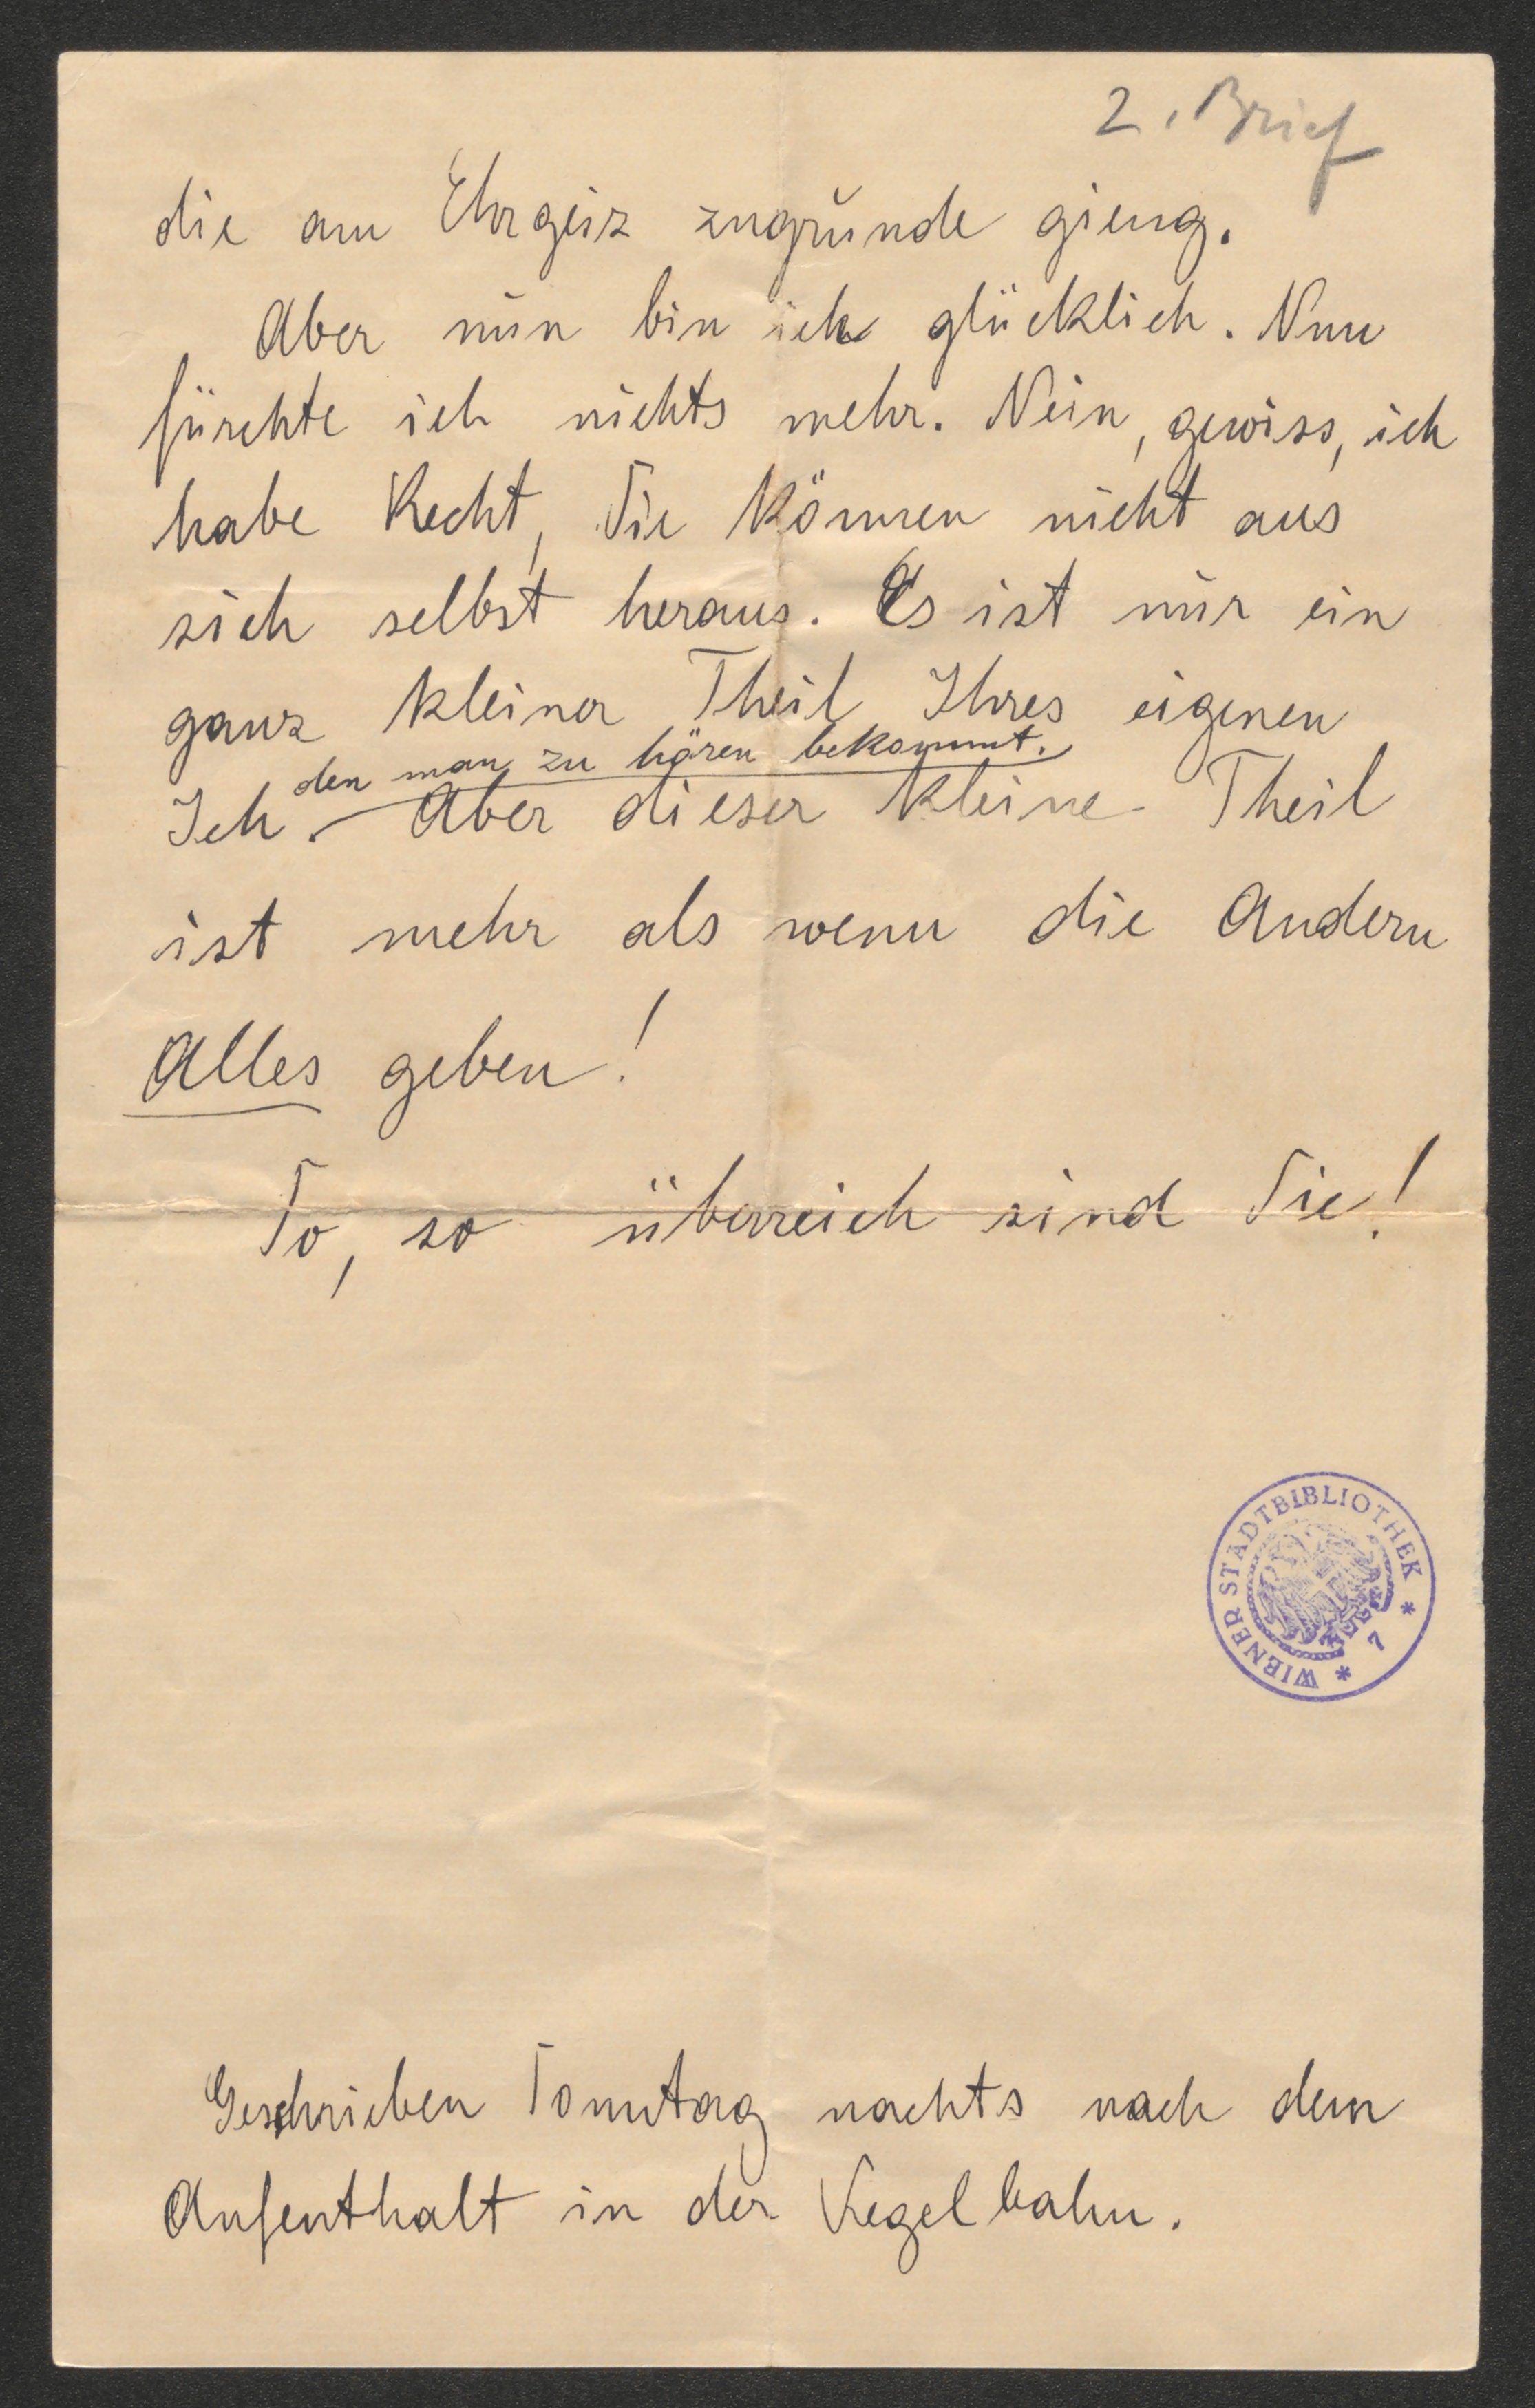 2. Brief
die am Ehrgeiz zugrunde gieng.
Aber nun bin ich glücklich. Nun
fürchte ich nichts mehr. Nein, gewiss, ich
habe Recht, Sie können nicht aus
sich selbst heraus. Es ist nur ein
ganz kleiner Theil Ihres eigenen
den man zu hören bekommt.
Ich. Aber dieser kleine Theil
ist mehr als wenn die Andern
Alles geben!
So, so überreich sind Sie!
WIENER STADTBIBLIOTHEK * 7 *
Geschrieben Sonntag nachts nach dem
Aufenthalt in der Kegelbahn.